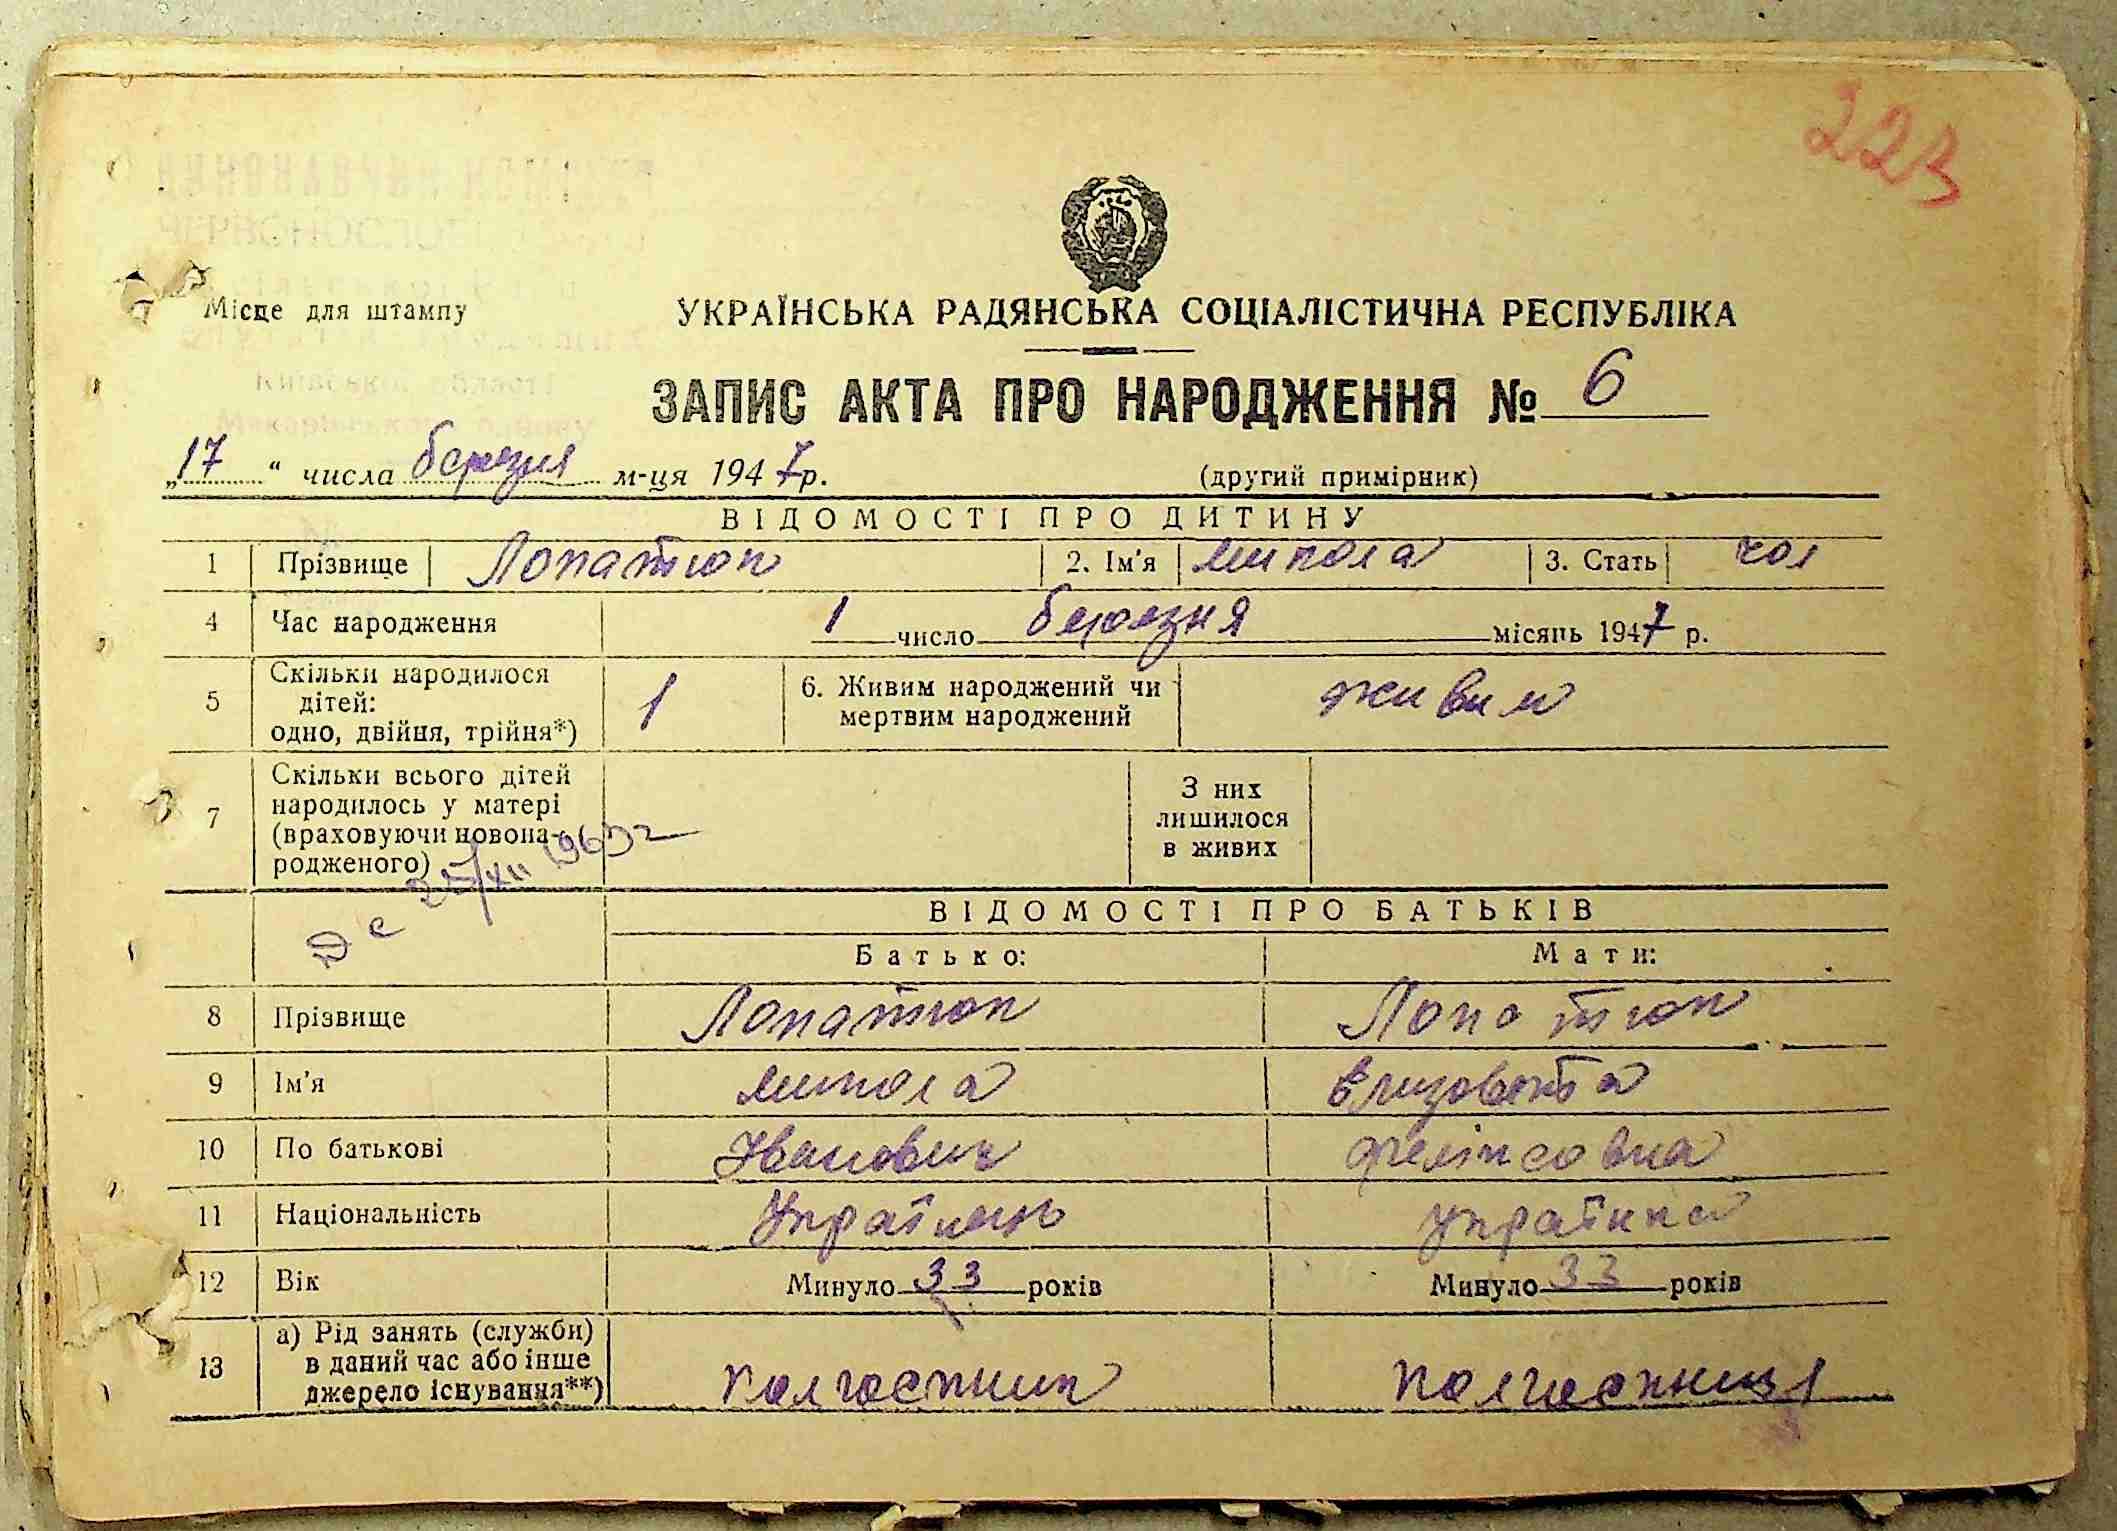 223
Місце для штампу
УКРАЇНСЬКА РАДЯНСЬКА СОЦІАЛІСТИЧНА РЕСПУБЛІКА
ЗАПИС АКТА ПРО НАРОДЖЕННЯ № 6
„17“ числа березня м-ця 1947 р.
(другий примірник)
ВІДОМОСТІ ПРО ДИТИНУ
1 Прізвище Лопатюк 2. Ім'я Микола 3. Стать чол
4 Час народження 1 число березня місяць 1947 р.
5 Скільки народилося дітей: одно, двійня, трійня*) 1 6. Живим народжений чи мертвим народжений живим
7 Скільки всього дітей народилось у матері (враховуючи новонародженого) З них лишилося в живих
ВІДОМОСТІ ПРО БАТЬКІВ
Батько: Мати:
8 Прізвище Лопатюк Лопатюк
9 Ім'я Микола Єлизовета
10 По батькові Іванович Феліксовна
11 Національність Українець Українка
12 Вік Минуло 33 років Минуло 33 років
13 а) Рід занять (служби) в даний час або інше джерело існування**) колгоспник колгоспниця